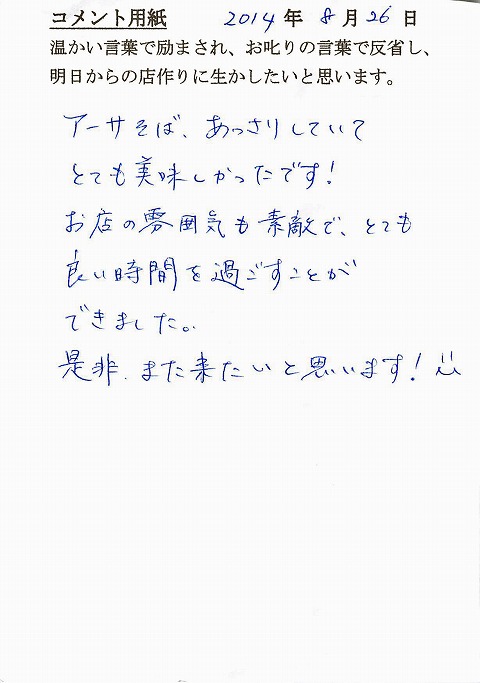 コメント用紙 2014年 8月26日
温かい言葉で励まされ、お叱りの言葉で反省し、
明日からの店作りに生かしたいと思います。
アーサそば、あっさりしていて
とても美味しかったです!
お店の雰囲気も素敵で、とても
良い時間を過ごすことが
できました。
是非、また来たいと思います!